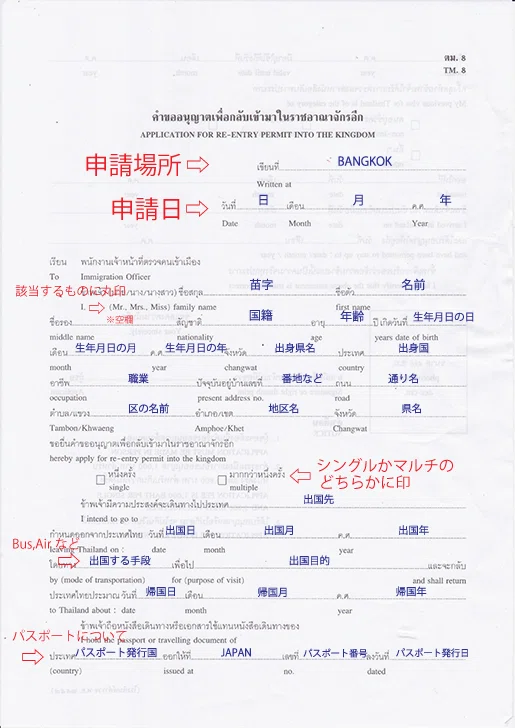 ตม. 8
TM. 8
คำขออนุญาตเพื่อกลับเข้ามาในราชอาณาจักรอีก
APPLICATION FOR RE-ENTRY PERMIT INTO THE KINGDOM
申請場所 เขียนที่ BANGKOK
Written at
申請日 วันที่ 日 เดือน 月 ค.ศ. 年
Date Month Year
เรียน พนักงานเจ้าหน้าที่ตรวจคนเข้าเมือง
To Immigration Officer
該当するものに丸印 (นาย/นาง/นางสาว) ชื่อสกุล 苗字 ชื่อตัว 名前
I. (Mr., Mrs., Miss) family name first name
ชื่อรอง ※空欄 สัญชาติ 国籍 อายุ 年齢 ปี เกิดวันที่ 生年月日の日
middle name nationality age years date of birth
เดือน 生年月日の月 ค.ศ. 生年月日の年 จังหวัด 出身県名 ประเทศ 出身国
month year changwat country
อาชีพ 職業 ปัจจุบันอยู่บ้านเลขที่ 番地など ถนน 通り名
occupation present address no. road
ตำบล/แขวง 区の名前 อำเภอ/เขต 地区名 จังหวัด 県名
Tambon/Khwaeng Amphoe/Khet Changwat
ขอยื่นคำขออนุญาตเพื่อกลับเข้ามาในราชอาณาจักรอีก
hereby apply for re-entry permit into the kingdom
หนึ่งครั้ง มากกว่าหนึ่งครั้ง シングルかマルチの
single multiple どちらかに印
ข้าพเจ้ามีความประสงค์จะเดินทางไปประเทศ 出国先
I intend to go to
กำหนดออกจากประเทศไทย วันที่ 出国日 เดือน 出国月 ค.ศ. 出国年
Bus,Air など leaving Thailand on : date month year
โดยทาง 出国する手段 เพื่อไป 出国目的 และจะกลับ
by (mode of transportation) for (purpose of visit) and shall return
ประเทศไทยประมาณ วันที่ 帰国日 เดือน 帰国月 ค.ศ. 帰国年
to Thailand about : date month year
ข้าพเจ้าถือหนังสือเดินทางหรือเอกสารใช้แทนหนังสือเดินทางของ
パスポートについて I hold the passport or travelling document of
ประเทศ パスポート発行国 ออกให้ที่ JAPAN เลขที่ パスポート番号 ลงวันที่ パスポート発行日
(country) issued at no. dated